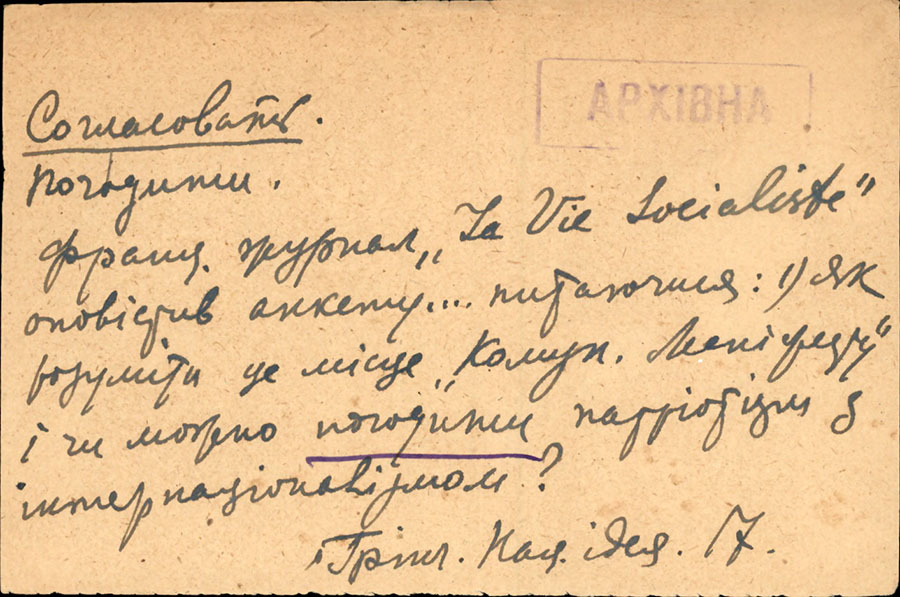 АРХІВНА
Согласовать.
Погодити.
Франц. журнал „La Vie Socialiste"
оповістив анкету... питаючися: 1) як
розуміти це місце „Комун. Маніфесту"
і чи можно погодити патріотизм з
інтернаціоналізмом?
Грінч. Нац. ідея. 17.